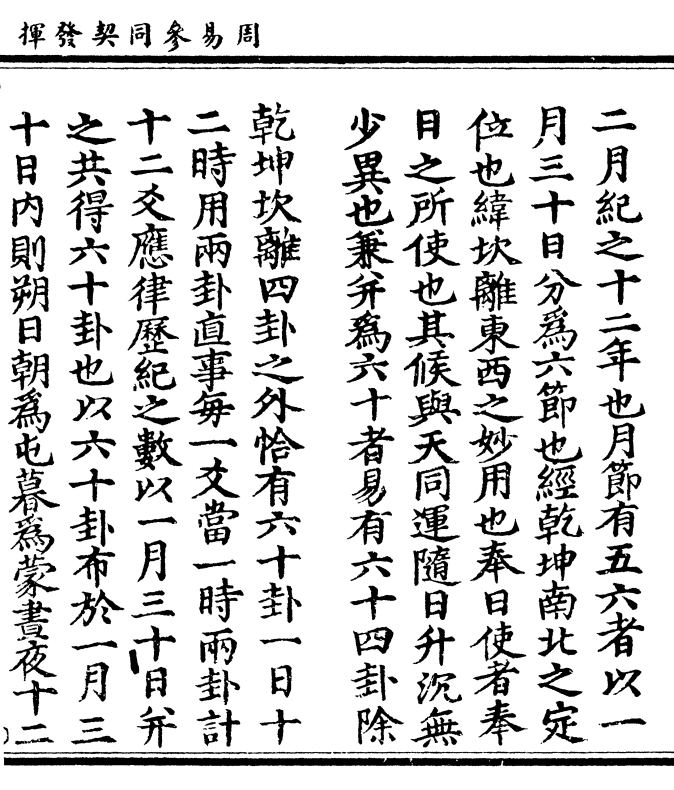 周易參同契發揮
二月紀之十二年也月節有五六者以一
月三十日分爲六節也經乾坤南北之定
位也緯坎離東西之妙用也奉日使者奉
日之所使也其候與天同運隨日升沉無
少異也兼并爲六十者易有六十四卦除
乾坤坎離四卦之外恰有六十卦一日十
二時用兩卦直事每一爻當一時兩卦計
十二爻應律歷紀之數以一月三十日并
之共得六十卦也以六十卦布於一月三
十日内則朔日朝爲屯暮爲蒙晝夜十二